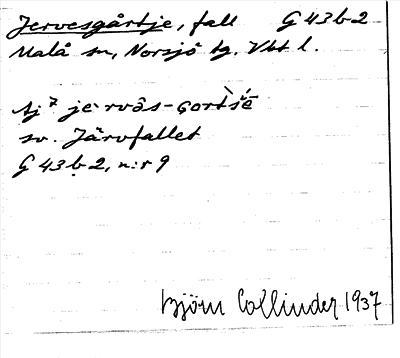 Jervesgårtje, fall G 43 b 2
Malå sn, Norsjö tg. Vbt l.
sv. Järvfallet
G 43 b 2, n:r 9
Björn Collinder 1937